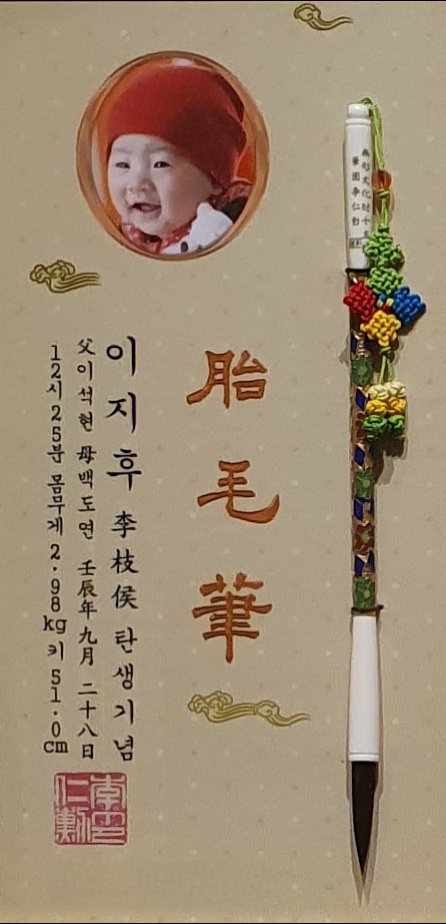 胎毛筆
이지후 李枝侯 탄생기념
父이석현 母백도연 壬辰年九月 二十八日
12시25분 몸무게 2.98kg 키 51.0cm